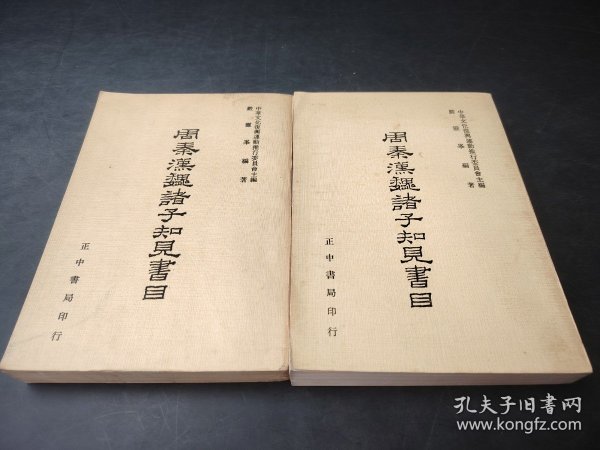 中華文化復興運動推行委員會主編
嚴靈峯編著
周秦漢魏諸子知見書目
正中書局印行
中華文化復興運動推行委員會主編
嚴靈峯編著
周秦漢魏諸子知見書目
正中書局印行
孔夫子旧书网
www.kongfz.com